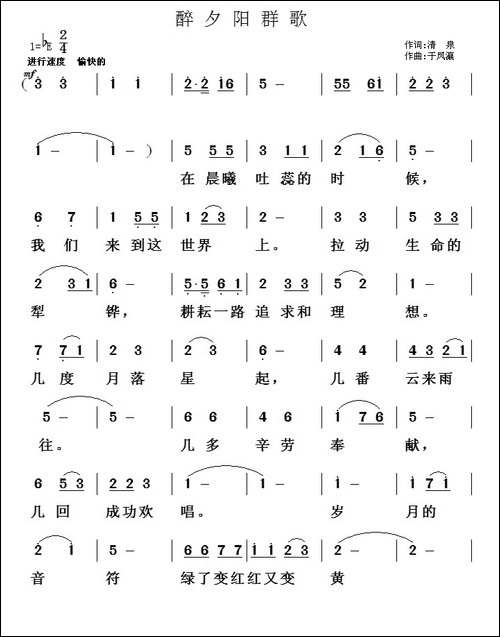 醉夕阳群歌
1=♭E 2/4
作词:清 泉
作曲:于凤瀛
进行速度 愉快的
mf
( 3 3 | 1 1 | 2·2 16 | 5 - | 55 61 | 22 3 |
1 - | 1 - ) | 5 55 | 3 11 | 2 16 | 5 - |
在 晨曦 吐 蕊的 时 候，
6 7 | 1 55 | 1 23 | 2 - | 3 3 | 5 33 |
我 们 来 到这 世界 上。 拉 动 生 命的
2 31 | 6 - | 5·5 61 | 2 33 | 5 2 | 1 - |
犁 铧， 耕耘一路 追 求和 理 想。
7 71 | 2 3 | 2 3 | 6 - | 4 4 | 43 21 |
几 度 月 落 星 起， 几 番 云来雨
5 - | 5 - | 6 6 | 4 6 | 1 76 | 5 - |
往。 几 多 辛 劳 奉 献，
6 53 | 22 3 | 1 - | 1 - | 1 1 | 1 71 |
几 回 成功欢 唱。 岁 月的
2 1 | 5 - | 66 77 | 11 23 | 2 - | 2 - |
音 符 绿了变红 红又变 黄